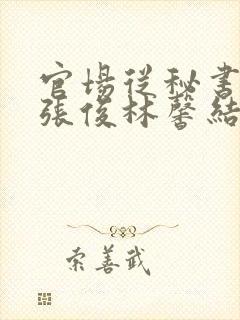 官場從秘書
張俊林馨結
索善武